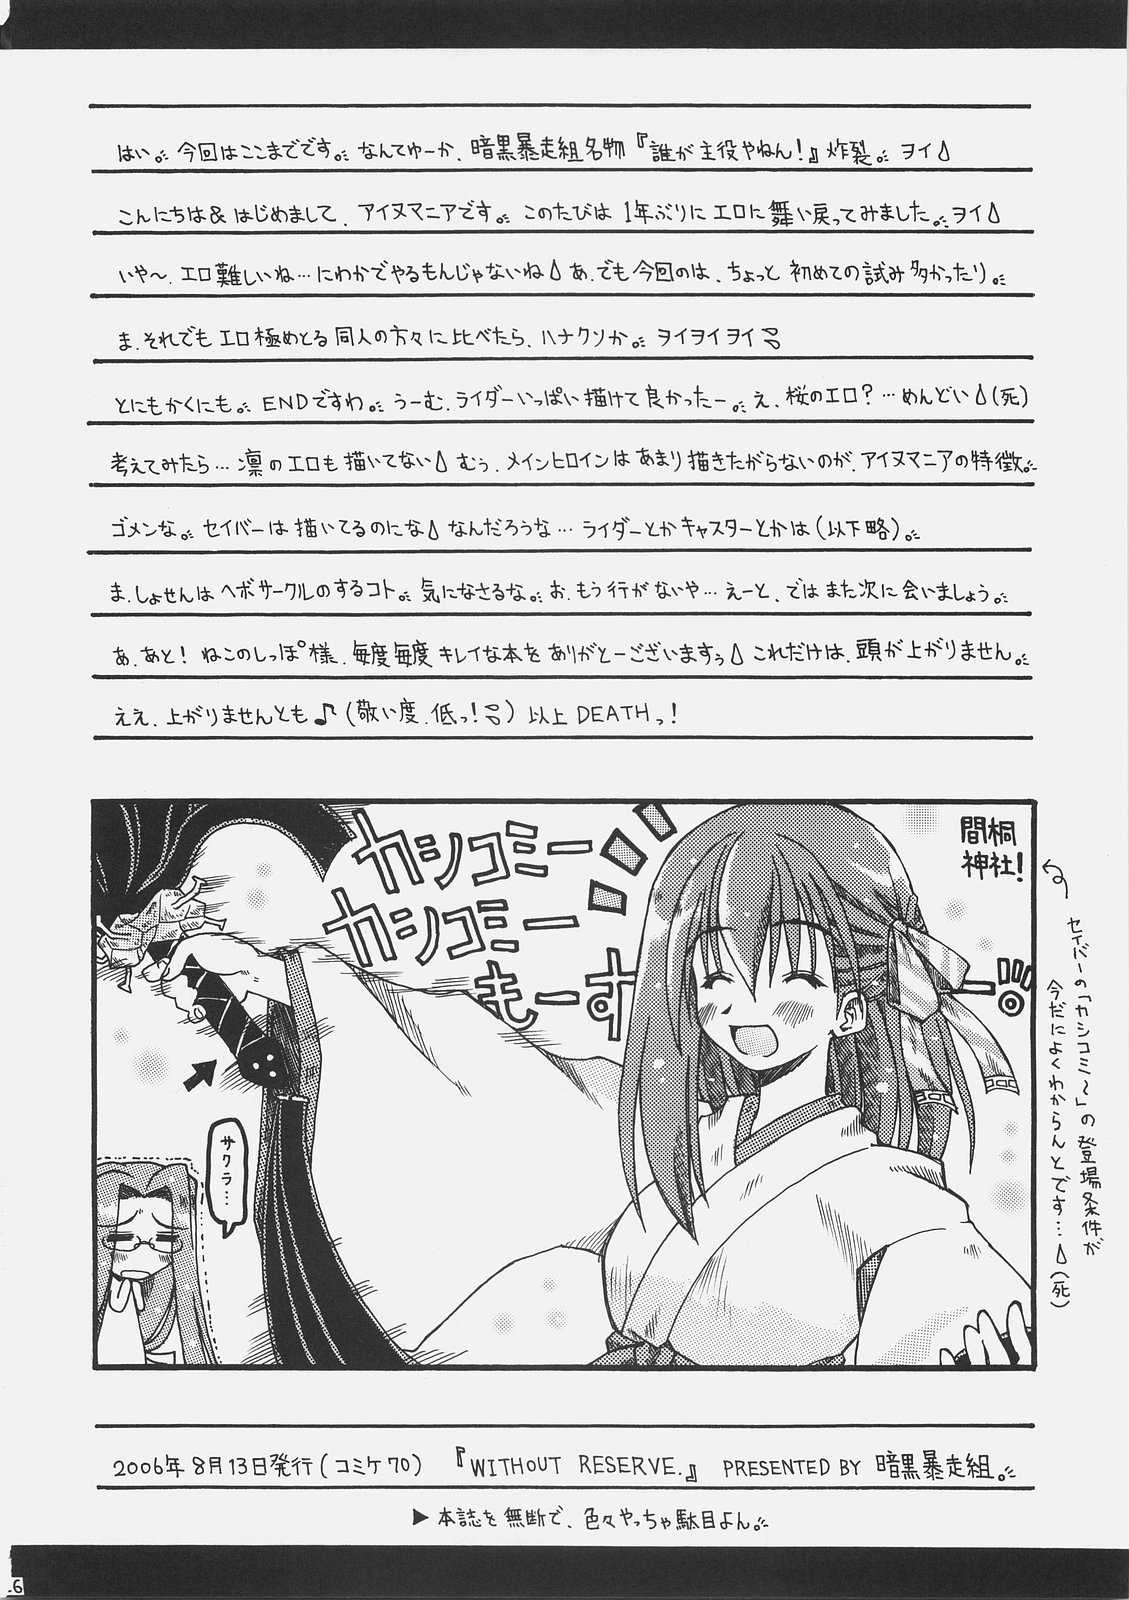 はい。今回はここまでです。なんてゆーか、暗黒暴走組名物『誰が主役やねん！』炸裂。ヲイ
こんにちは＆はじめまして、アイヌマニアです。このたびは1年ぶりにエロに舞い戻ってみました。ヲイ
いや〜、エロ難しいね…にわかでやるもんじゃないね あ、でも今回のは、ちょっと初めての試み多かったり。
ま、それでもエロ極めとる同人の方々に比べたら、ハナクソか。ヲイヲイヲイ
とにもかくにも。ENDですわ。うーむ、ライダーいっぱい描けて良かったー。え、桜のエロ？…めんどい（死）
考えてみたら…凛のエロも描いてない むぅ、メインヒロインはあまり描きたがらないのが、アイヌマニアの特徴。
ゴメンな。セイバーは描いてるのにな なんだろうな…ライダーとかキャスターとかは（以下略）。
ま、しょせんはヘボサークルのするコト。気になさるな。お、もう行がないや…えーと、ではまた次に会いましょう。
あ、あと！ねこのしっぽ様、毎度毎度キレイな本をありがとーございますぅ これだけは、頭が上がりません。
ええ、上がりませんとも♪（敬い度、低っ！）以上DEATHっ！
間桐
神社！
カシコミー
カシコミー
もーす
ー。!!!
サクラ…
セイバーの「カシコミ〜」の登場条件が
今だによくわからんとです…（死）
2006年8月13日発行（コミケ70）『WITHOUT RESERVE.』 PRESENTED BY 暗黒暴走組。
▶本誌を無断で、色々やっちゃ駄目よん。
6